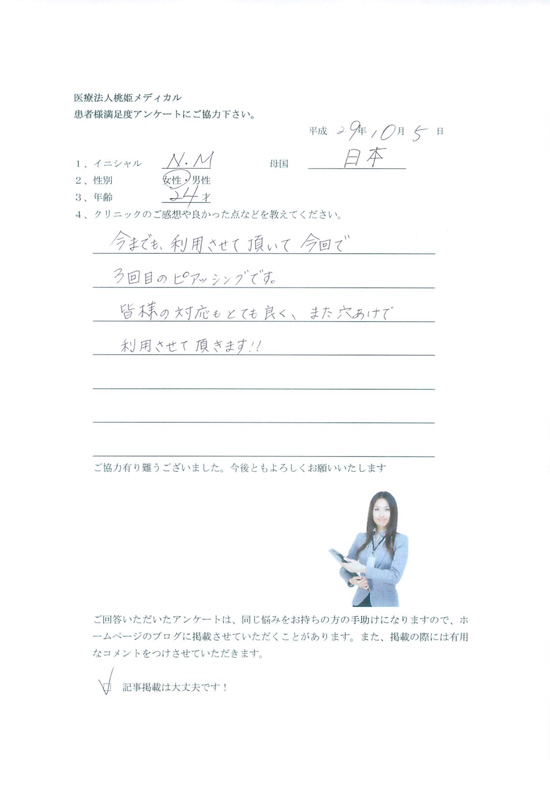 医療法人桃姫メディカル
患者様満足度アンケートにご協力下さい。
平成 29年 10月 5 日
1、イニシャル N.M 母国 日本
2、性別 女性・男性
3、年齢 24才
4、クリニックのご感想や良かった点などを教えてください。
今までも、利用させて頂いて 今回で
3回目のピアッシングです。
皆様の対応もとても良く、また穴あけで
利用させて頂きます!!
ご協力有り難うございました。今後ともよろしくお願いいたします
ご回答いただいたアンケートは、同じ悩みをお持ちの方の手助けになりますので、ホ
ームページのブログに掲載させていただくことがあります。また、掲載の際には有用
なコメントをつけさせていただきます。
記事掲載は大丈夫です！